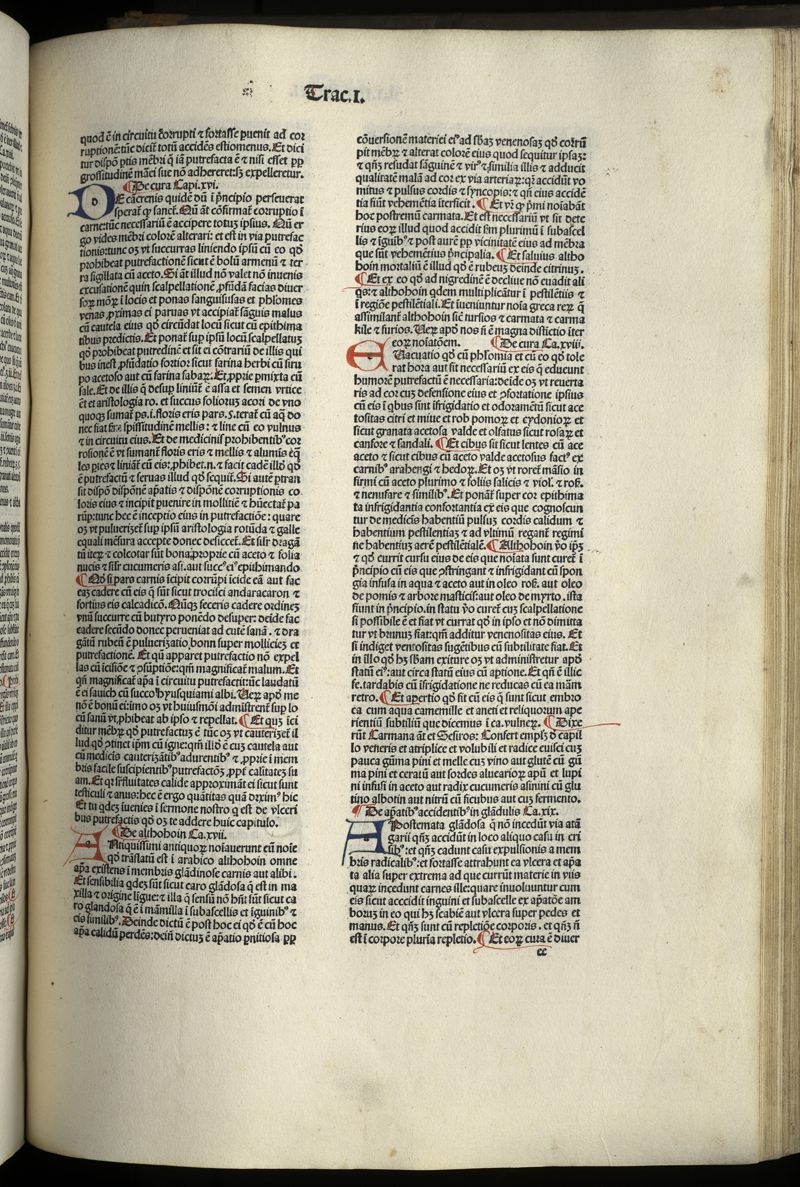 Trac.I.
quod ē in circuitu corrupti ⁊ fortasse puenit ad cor
ruptionē:tūc dicit̄ totū accidēs estiomenus. Et dici
tur dispō ptis mēbri q̄ iā putrefacta ē ⁊ nisi esset pp̄
grossitudinē māci sue nō adhereret:sꝫ expelleretur.
¶De cura Capi.xvi.
DE cācrenis quidē dū ī pncipio perseuerat
sperat̄ ꝙ sanet̄. Nā āt cōfirmat̄ corruptio ī
carne:tūc necessariū ē accipere totuꝫ ipsius. Nū er
go vides mēbri colorē alterari: et est in via putrefac
tionis:tunc oꝫ vt succurras liniendo ipsū cū eo qđ
prohibeat putrefactionē sicut ē bolū armenū ⁊ ter
ra sigillata cū aceto. Si āt illud nō valet nō inuenis
excusationē quin scalpellationē ꝓfūdā facias diuer
soꝝ moꝝ ī locis et ponas sanguisugas et phlomes
venas ꝓximas ei paruas vt accipiat̄ sāguis malus
cū cautela eius qđ circūdat locū sicut cū epithima
tibus predictis. Et ponat̄ sup ipsū locū scalpellatuꝫ
qđ prohibeat putredinē et sit ei cōtrariū de illis qui
bus inest ꝓfūdatio fortior sicut farina herbi cū siru
po acetoso aut cū farina fabaꝝ. Et ꝓprie pmixta cū
sale. Et de illis q̄ desup liniunt̄ ē assa et semen vrtice
ēt et aristologia ro. et succus folioruꝫ acori de vno
quoqꝫ sumat̄ ps.i. floris eris pars.5. terat̄ cū aq̄ do
nec fiat sm̄ spissitudinē mellis: ⁊ line cū eo vulnus
⁊ in circuitu eius. Et de medicinis prohibentibꝰ cor
rosionē ē vt sumant̄ floris eris ⁊ mellis ⁊ alumis ēq̄
les ptes ⁊ liniat̄ cū eis: ꝓhibet.n. ⁊ facit cadē illō qđ
ē putrefactū ⁊ seruas illud qđ seqt̄. Si autē ptran
sit dispō dispōnē apatis ⁊ dispōnē corruptionis co
loris eius ⁊ incipit puenire in mollitiē ⁊ hūectat̄ pa
rūp:tunc hec ē inceptio eius in putrefactiōe: quare
oꝫ vt pulueriꝫet̄ sup ipsū aristologia rotūda ⁊ galle
equali mēsura accepte donec desiccet̄. Et silr̄ dragā
tū iteꝝ ⁊ colcotar sūt bona.proprie cū aceto ⁊ folia
nucis ⁊ silr̄ cucumeris asi. aut succꝰ eiꝰ epithimando
¶Nō si pars carnis īcipit corrūpi īcide eā aut fac
eaꝫ cadere cū eis q̄ sūt sicut trocisci andaracaron ⁊
fortius eis calcadicō. Nūqꝫ feceris cadere ordineꝫ
vnū succurre cū butyro ponēdo desuper: deīde fac
cadere secūdo donec perueniat ad cutē sanā. ⁊ dra
gātū rubeū ē pulueriꝫatio bonn super molliciēꝫ et
putrefactionē. Et qñ apparet putrefactio nō expel
las cū īcisiōe ⁊ ꝓsūptiōe: qm̄ magnificat̄ malum. Et
qñ magnificat̄ apā ī circuitu putrefacti:tūc laudatū
ē ei lauich cū succo hyusquiami albi. Veꝝ apd̄ me
nō ē bonū ei:imo oꝫ vt huiusmōi admistrent̄ sup lo
cū sanū vt ꝓhibeat ab ipso ⁊ repellat. ¶Et quꝫ īci
ditur mēbꝝ qđ putrefactuꝫ ē tūc oꝫ vt cauterizet̄ il
lud qđ ꝯtinet ipm̄ cū igne:qm̄ illō ē cuꝫ cautela aut
cū medicīs cauterizātibꝰ adurentibꝰ ⁊ ꝓprie ī mem
bris facile suscipientibꝰ putrefactōꝫ ꝓpt̄ caliditateꝫ su
am. Et qꝛ sꝑfluitates calide approximāt̄ ei sicut sunt
testiculi ⁊ anus:hec ē ergo quātitas quā diximꝰ hic
Et tu qđeꝫ iuenies ī sermone nostro q est de vlceri
bus putrefactis qđ oꝫ te addere huic capitulo.
¶De althohoin Ca.xvii.
ANtiquissimi antiquoꝝ noīauerunt eū noīe
qđ trāslatū est ī arabico althohoin omne
apa existens ī membris glādinose carnis aut alibi.
Et sensibilia qđeꝫ sūt sicut caro glādosa q̄ est in ma
xilla ⁊ origine ligue:⁊ illa q̄ sensū nō hñt sūt sicut ca
ro glandosa q̄ ē ī māmilla ī subascellis et īguinibꝰ ⁊
eis similibꝰ. Deinde dictū ē post hec ei qđ ē cū hoc
apa calidū perdēs:deīn dictuꝫ ē apatio ꝑnitiosa pp̄
cōuersionē materiei eiꝰ ad sbāꝫ venenosaꝫ qđ corrū
pit mēbꝝ ⁊ alterat colorē eius quod sequitur ipsaꝫ:
⁊ qñꝫ resudat sāguinē ⁊ virꝰ ⁊ similia illis ⁊ adducit
qualitatē malā ad cor ex via arteriaꝝ:q̄ accidūt vo
mitus ⁊ pulsus cordis ⁊ syncopis: ⁊ qñ eius acciden
tia fiūt vehemētia īterficit. ¶Et vr̄ ꝙ pmi noīabāt
hoc postremū carmata. Et est necessariū vt sit dete
rius eoꝝ illud quod accidit sm̄ plurimū ī subascel
lis ⁊ īguibꝰ ⁊ post aurē pp̄ vicinitatē eius ad mēbra
que sūt vehemētius pncipalia. ¶Et saluius altho
hoin mortaliū ē illud qđ ē rubeuꝫ deinde citrinuꝫ.
¶Et ex eo qđ ad nigredinē ē decliue nō euadit ali
qs:⁊ althohoin qdem multiplicātur ī pestilētiis ⁊
ī regiōe pestilētiali. Et iueniuntur noīa greca reꝝ q̄
assimilant̄ althohoin sic̄ tursios ⁊ carmata ⁊ carma
kile ⁊ furios. Veꝝ apd̄ nos nō ē magna distictio īter
eoꝝ noīatōem. ¶De cura Ca.xviii.
EUacuatio qđ cū phlomia et cū eo qđ tole
rat hora aut sit necessariū ex eis q̄ educunt
humorē putrefactū ē necessaria:deīde oꝫ vt reuerta
ris ad cor cuꝫ defensione eius et ꝯfortatione ipsius
cū eis ī qbus sint īfrigidatio et odoramētū sicut ace
tositas citri et miue et rob pomoꝝ et cydonioꝝ et
sicut granata acetosa valde et olfatus sicut rosaꝝ et
canfore ⁊ sandali. ¶Et cibus sit sicut lentes cū ace
aceto ⁊ sicut cibus cū aceto valde acetosus factꝰ ex
carnibꝰ arahengi ⁊ hedoꝝ. Et oꝫ vt roret̄ māsio in
firmi cū aceto plurimo ⁊ foliis salicis ⁊ viol. ⁊ ros.
⁊ nenufare ⁊ similibꝰ. Et ponat̄ sup cor epithima
ta infrigidantia confortantia ex eis que cognoscun
tur de medicīs habentiū pulsuꝫ cordis calidum ⁊
habentium pestilentiaꝫ ⁊ ad vltimū regant̄ regimi
ne habentiū aerē pestilētialē. ¶Althohoin v̄o ipꝫ
⁊ qđ currit cursu eius de eis que noīata sunt curet̄ ī
pncipio cū eis que ꝓstringant ⁊ infrigidant cū spon
gia infusa in aqua ⁊ aceto aut in oleo ros. aut oleo
de pomis ⁊ arbore masticis:aut oleo de myrto. ista
fiunt in pncipio.in statu v̄o curet̄ cuꝫ scalpellatione
si possibile ē et fiat vt currat qđ in ipso et nō dimitta
tur vt brunuꝫ fiat:qm̄ additur venenositas eius. Et
si indiget ventositas sugētibus cū subtilitate fiat. Et
in illo qđ hꝫ sbam exiture oꝫ vt administretur apd̄
statū eiꝰ:aut circa statū eius cū aptione. Et qñ ē illic
fe.tardabis cū īfrigidatione ne reducas cū ea mām
retro. ¶Et apertio qđ fit cū eis q̄ sunt sicut embro
ca cum aqua camemille ⁊ aneti et reliquorum ape
rientiū subtiliū que dicemus ī ca.vulneꝝ. ¶Dixe
rūt Carmana āt et Sesiros: Confert emplꝫ đ capil
lo veneris et atriplice et volubili et radice euisci cuꝫ
pauca gūma pini et melle cuꝫ vino aut glutē cū gū
ma pini et ceratū aut sordes alueariorꝫ apū et lupi
ni infusi in aceto aut radix cucumeris asinini cū glu
tino albotin aut nitrū cū ficubus aut cuꝫ fermento.
¶De apatibꝰ accidentibꝰ in glādulis Ca.xix.
APostemata glādosa q̄ nō incedūt via atā
garii qñꝫ accidūt in loco aliquo casu in cri
sibꝰ:et qñꝫ cadunt casu expulsionis a mem
bris radicalibꝰ:et fortasse attrahunt ea vlcera et apa
ta alia super extrema ad que currūt materie in viis
quaꝝ incedunt carnes ille:quare inuoluuntur cum
eis sicut acccidit inguini et subascelle ex apatōe am
boruꝫ in eo qui hꝫ scabiē aut vlcera super pedes et
manus. Et qñꝫ sunt cū repletiōe corporis. et qñꝫ ñ
est ī corpore pluria repletio. ¶Et eoꝝ cura ē diuer
cc